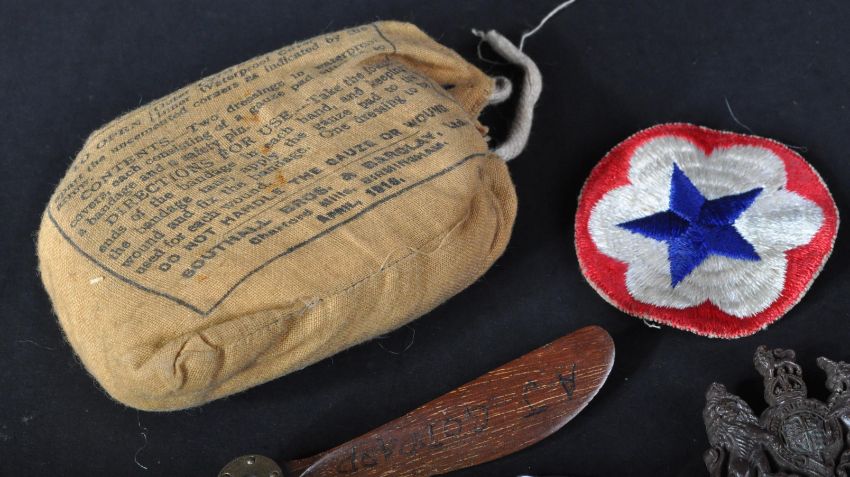 TO OPEN Outer Waterproof Cover
(Inner Waterproof Cover
the uncemented corners as indicated by the
CONTENTS. Two dressings in waterproof
covers each consisting of a gauze pad
a bandage and a safety pin.
DIRECTIONS FOR USE. Take the folded
ends of the bandage in each hand, and keeping
the bandage taut apply the gauze pad to the
wound and fix the bandage. One dressing to be
used for each wound.
DO NOT HANDLE THE GAUZE OR WOUND.
SOUTHALL BROS. & BARCLAY, Ltd.
Charford Mills, BIRMINGHAM.
April, 1918.
A·J